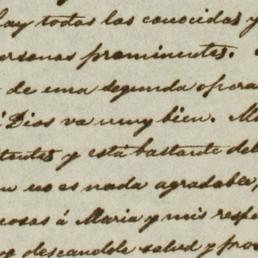 hay todas las conocidas y
ersonas prominentes.
de una segunda opera
Dios va muy bien. M
y está bastante de
no es nada agradable,
cosas á Maria y mis resp
deseandole salud y pros